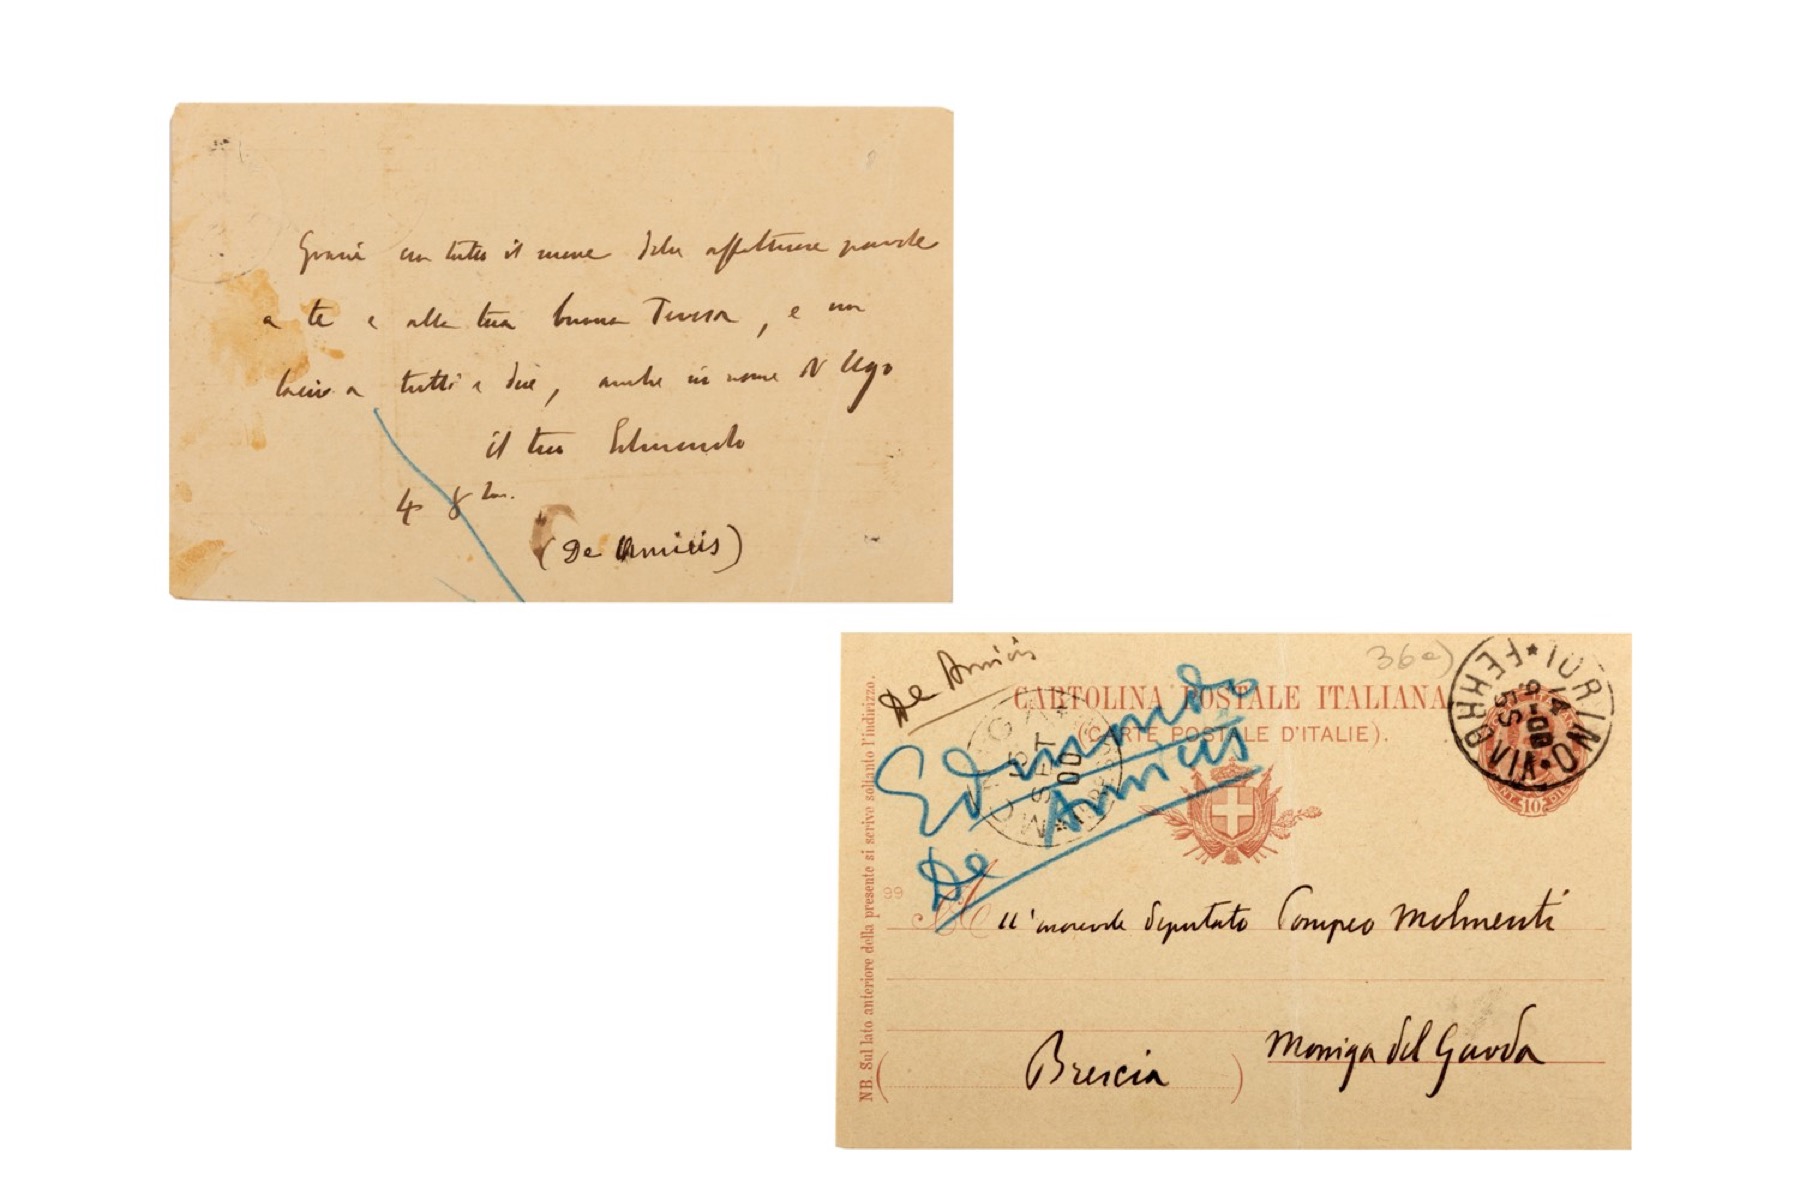 Grazie con tutto il cuore delle affettuose parole
a te e alla tua buona Teresa, e un
bacio a tutti e due, anche in nome d'Ugo
il tuo Edmondo
4 8bre.
(De Amicis)
De Amicis
36a)
CARTOLINA POSTALE ITALIANA
(CARTE POSTALE D'ITALIE).
TORINO
FERROVIA
14
9-00
5S
MONIGA
15
SET
00
Edmondo
De Amicis
NB. Sul lato anteriore della presente si scrive soltanto l'indirizzo.
99
A
ll'onorevole deputato Pompeo Molmenti
Moniga del Garda
(Brescia)
10